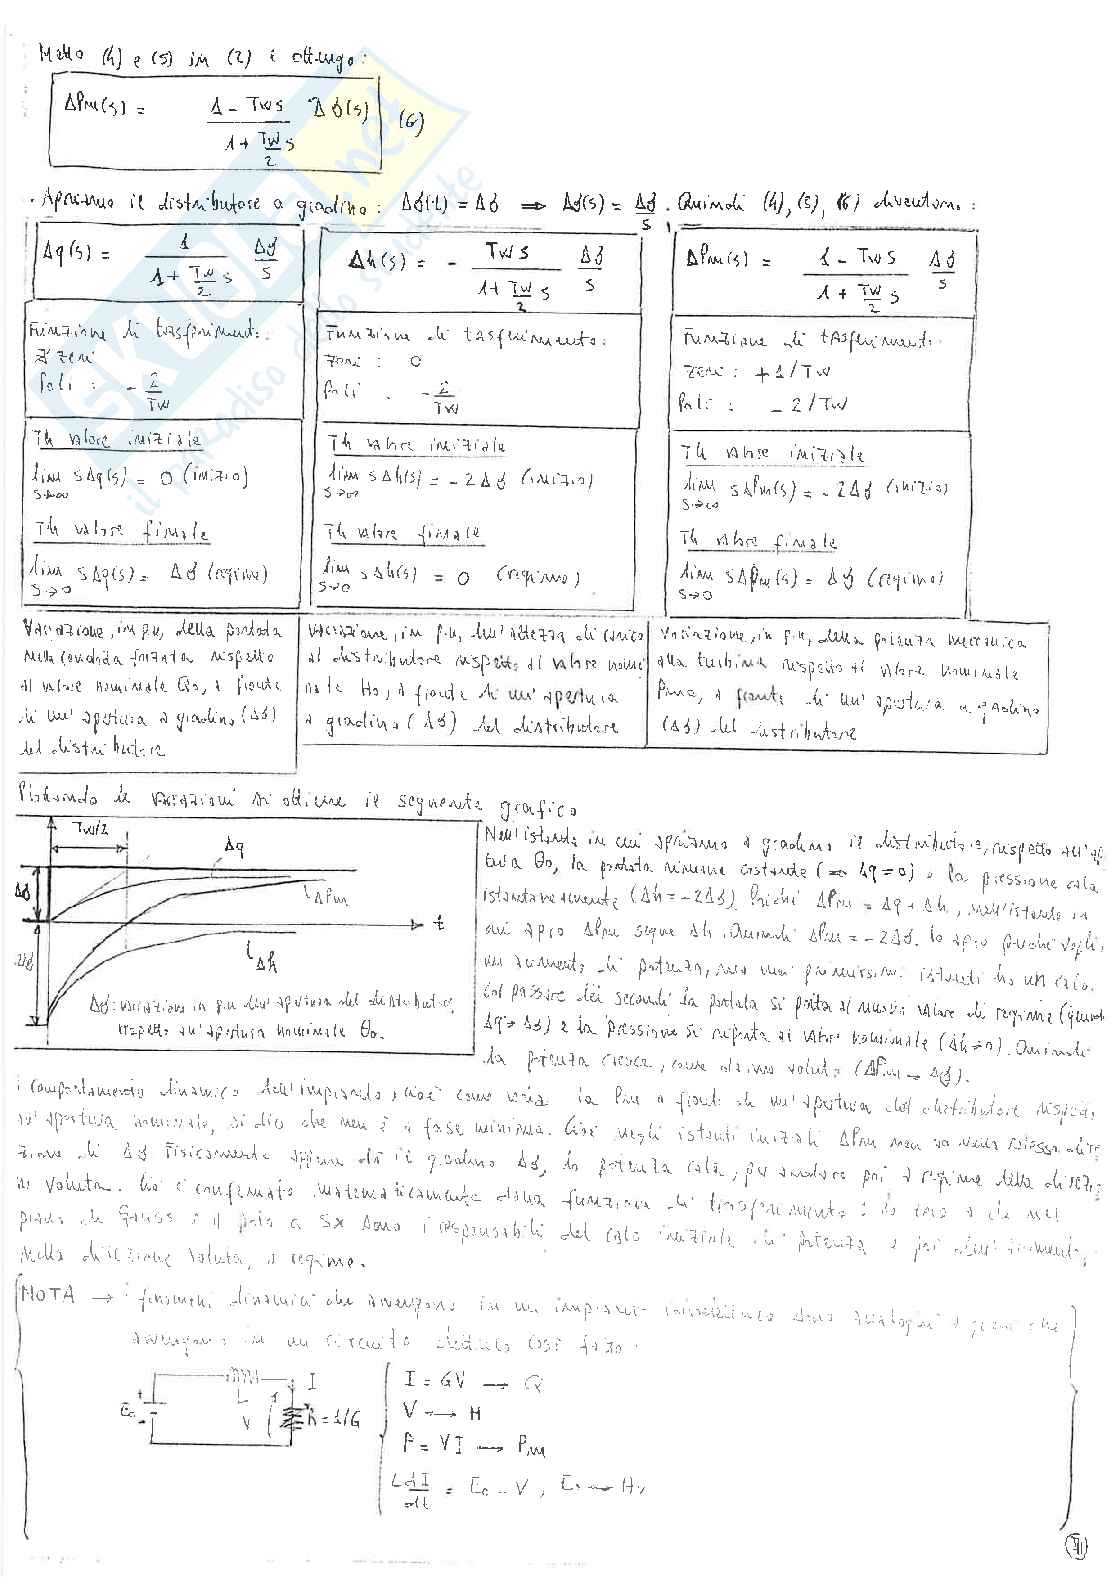 Metto (4) e (5) in (2) e ottengo:
ΔPm(s) = (1 - Tw s)/(1 + Tw/2 s) Δϑ(s) (6)
. Apriamo il distributore a gradino: Δϑ(t) = Δϑ ⟹ Δϑ(s) = Δϑ/s. Quindi (4), (5), (6) diventano:
Δq(s) = 1/(1 + Tw/2 s) Δϑ/s
Funzione di trasferimento:
∄ zeri
Poli: - 2/Tw
Th valore iniziale
lim s→∞ sΔq(s) = 0 (inizio)
Th valore finale
lim s→0 sΔq(s) = Δϑ (regime)
Variazione, in p.u, della portata
nella condotta forzata rispetto
al valore nominale Q0, a fronte
di un'apertura a gradino (Δϑ)
del distributore
Δh(s) = - Tw s/(1 + Tw/2 s) Δϑ/s
Funzione di tasferimento:
Zeri: 0
Poli: - 2/Tw
Th valore iniziale
lim s→∞ sΔh(s) = - 2Δϑ (inizio)
Th valore finale
lim s→0 sΔh(s) = 0 (regime)
Variazione, in p.u, dell'altezza di carico
al distributore rispetto al valore nomi
nale H0, a fronte di un'apertura
a gradino (Δϑ) del distributore
ΔPm(s) = (1 - Tw s)/(1 + Tw/2 s) Δϑ/s
Funzione di tasferimento:
Zeri: +1/Tw
Poli: - 2/Tw
Th valore iniziale
lim s→∞ sΔPm(s) = - 2Δϑ (inizio)
Th valore finale
lim s→0 sΔPm(s) = Δϑ (regime)
Variazione, in p.u, della potenza meccanica
alla turbina rispetto al valore nominale
a fronte di un'apertura a gradino
(Δϑ) del distributore
Plottando le variazioni si ottiene il seguente grafico
Tw/2
Δq
Δϑ
ΔPm
t
Δh
Δϑ: variazione in p.u dell'apertura del distributore
rispetto all'apertura nominale ϑ0.
Nell'istante in cui apriamo a gradino il distributore, rispetto all'aper
tura ϑ0, la portata rimane costante (⟹ Δq = 0) e la pressione cala
istantaneamente (Δh = -2Δϑ). Poichè ΔPm = Δq + Δh, nell'istante in
cui apro ΔPm segue Δh. Quindi ΔPm = -2Δϑ. Io apro perchè voglio
un aumento di potenza, ma nei primissimi istanti ho un calo.
Col passare dei secondi la portata si porta al nuovo valore di regime (quindi
Δq → Δϑ) e la pressione si riporta al valore nominale (Δh → 0). Quindi
la potenza cresce, come da me voluto (ΔPm → Δϑ).
l comportamento dinamico dell'impianto, cioè come varia la Pm a fronte di un'apertura del distributore rispetto
all'apertura nominale, si dice che non è a fase minima. Cioè negli istanti iniziali ΔPm non va nella stessa dire
zione di Δϑ. Fisicamente appena do il gradino Δϑ, la potenza cala, per andare poi a regime nella direzio
ne voluta. Ciò è confermato matematicamente dalla funzione di trasferimento: lo zero a dx nel
piano di Gauss e il polo a sx sono i responsabili del calo iniziale di potenza e poi dell'aumento,
nella direzione voluta, a regime.
NOTA → i fenomeni dinamici che avvengono in un impianto idroelettrico sono analoghi a quelli che
avvengono in un circuito elettrico così fatto:
E0
L
I
V
R = 1/G
I = GV → Q
V → H
P = VI → Pm
L dI/dt = E0 - V, E0 → H0
71
SKUOLA.net
il paradiso dello studente